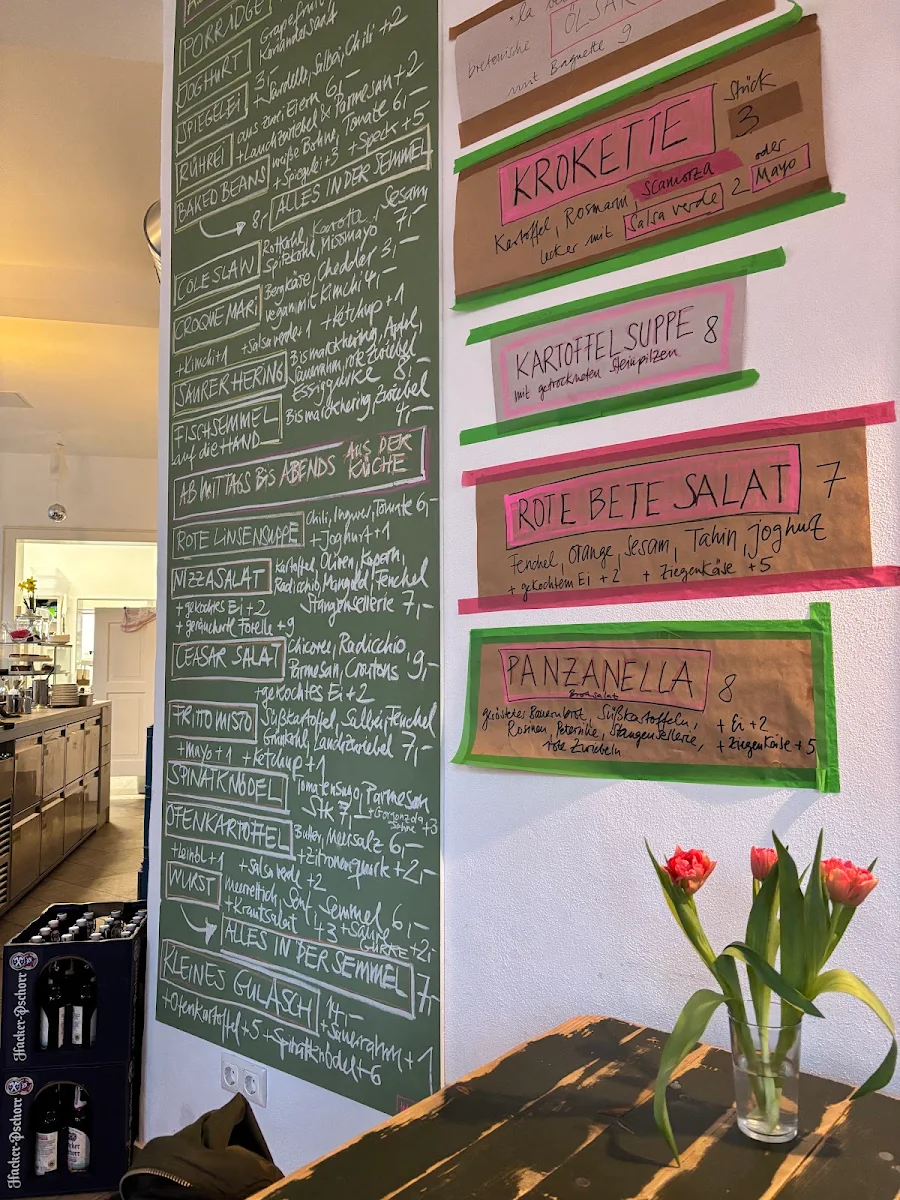 PORRIDGE
Grapefruit
Koriandersaat
JOGHURT 3,-
SPIEGELEI + Sardelle, Salbei, Chili +2
RÜHREI aus zwei Eiern 6,-
+ Lauchzwiebel & Parmesan +2
BAKED BEANS weiße Bohne, Tomate 6,-
+ Spiegelei +3 + Speck +5
8,- ALLES IN DER SEMMEL
COLESLAW Rotkohl, Karotte, Sesam
Spitzkohl, Misomayo 7,-
CROQUE MARI Bergkäse, Cheddar 3,-
vegan mit Kimchi 4,-
+ Kimchi +1 + Salsa verde 1 + Ketchup +1
SAURER HERING Bismarckhering, Apfel,
Sauerrahm, rote Zwiebel,
Essiggurke 8,-
FISCHSEMMEL Bismarckhering, Zwiebel
auf die HAND 4,-
AB MITTAGS BIS ABENDS AUS DER
KÜCHE
ROTE LINSENSUPPE Chili, Ingwer, Tomate 6,-
+ Joghurt +1
NIZZASALAT Kartoffel, Oliven, Kapern,
Radicchio, Mangold, Fenchel
+ gekochtes Ei +2 Stangensellerie 7,-
+ geräucherte Forelle +9
CEASAR SALAT Chicoree, Radicchio
Parmesan, Croutons 9,-
+ gekochtes Ei +2
FRITTO MISTO Süßkartoffel, Salbei, Fenchel
Grünkohl, Lauchzwiebel 7,-
+ mayo +1 + Ketchup +1
SPINATKNÖDEL Tomatensugo, Parmesan
Stk 7,- + Gorgonzola
Sahne +3
OFENKARTOFFEL Butter, Meersalz 6,-
+ Zitronenquark +2,-
+ Leinöl +1 + Salsa verde +2
WURST Meerrettich, Senf, Semmel 6,-
+ Krautsalat +3 + Saure
GURKE +2,-
ALLES IN DER SEMMEL 7,-
KLEINES GULASCH 14,-
+ Sauerrahm +1
+ Ofenkartoffel +5 + Spinatknödel +6
bretonische ÖLSAR
mit Baguette 9
KROKETTE Stück
3
Kartoffel, Rosmarin, scamorza
lecker mit Salsa verde 2 oder
Mayo
KARTOFFELSUPPE 8
mit getrockneten Steinpilzen
ROTE BETE SALAT 7
Fenchel, Orange, Sesam, Tahin, Joghurt
+ gekochtem Ei +2 + Ziegenkäse +5
PANZANELLA 8
Brotsalat
gerösteter Bauernbrot, Süßkartoffeln,
Rosinen, Petersilie, Stangensellerie,
rote Zwiebeln
+ Ei +2
+ Ziegenkäse +5
Hacker-Pschorr
Hacker-Pschorr